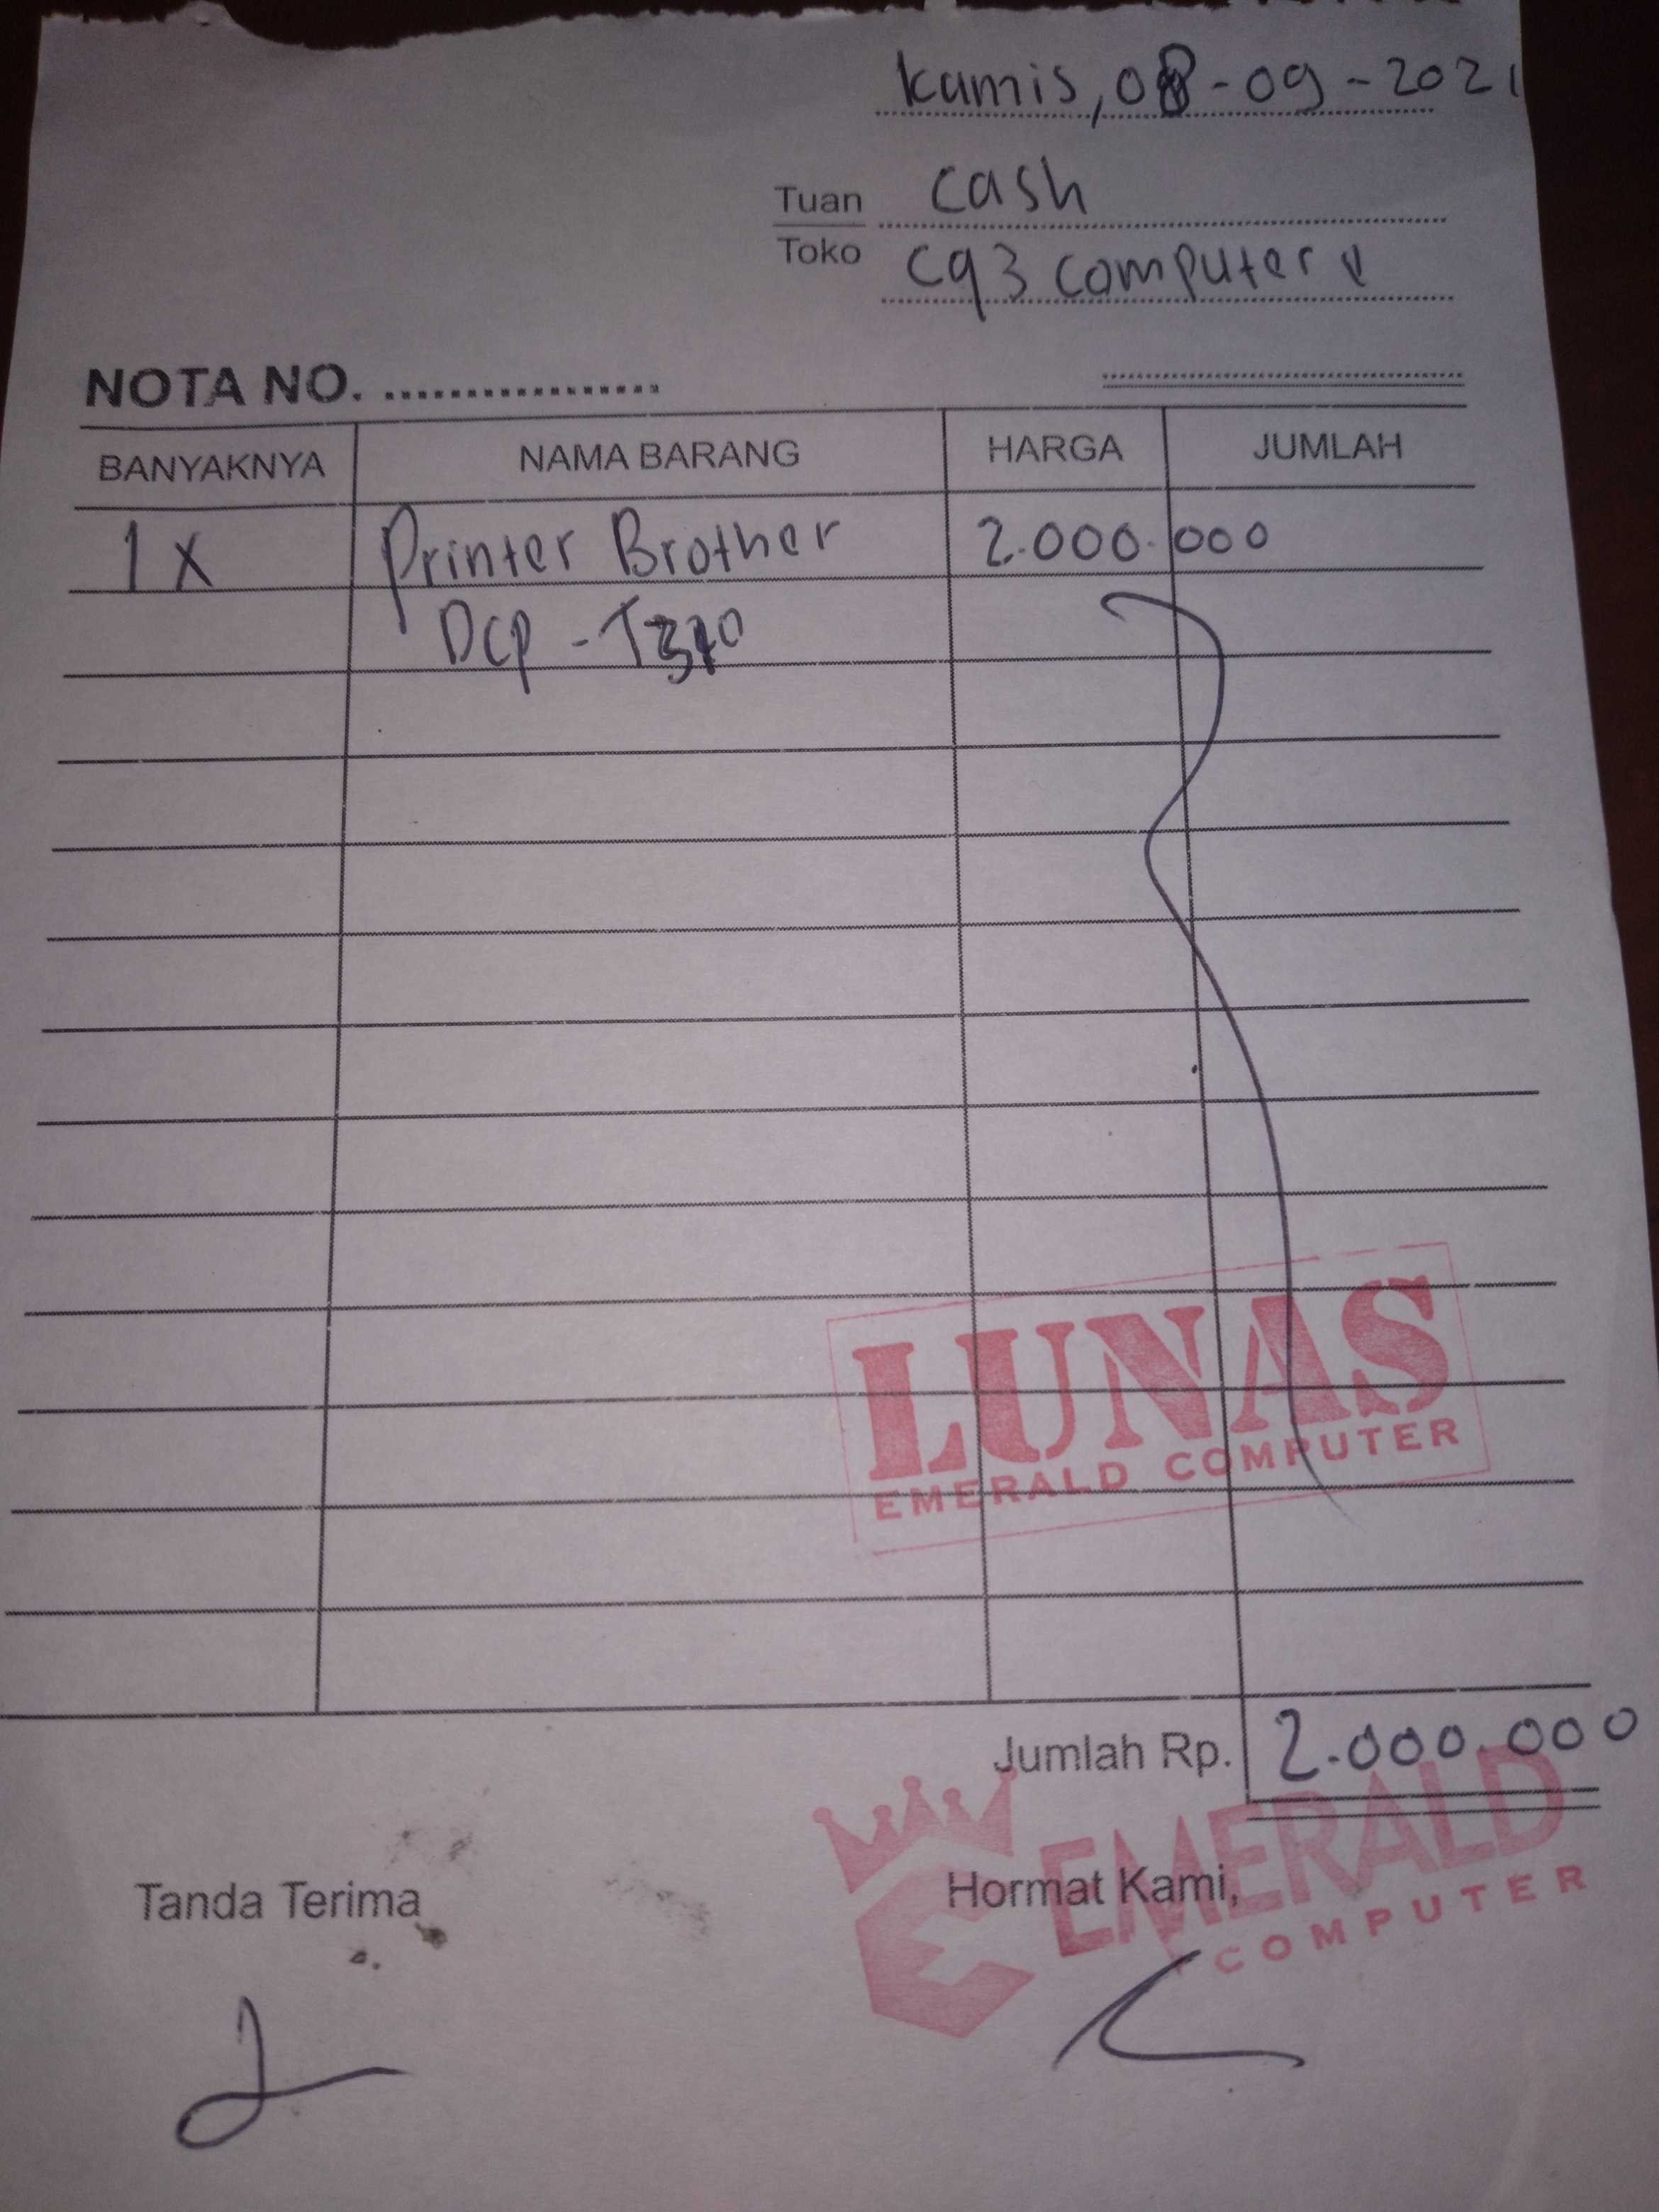 kamis, 08-09-2021
Tuan cash
Toko cq3 computer
NOTA NO. ....................
BANYAKNYA NAMA BARANG HARGA JUMLAH
1 x Printer Brother 2.000.000
Dcp - T310
LUNAS
EMERALD COMPUTER
Jumlah Rp. 2.000.000
EMERALD
COMPUTER
Tanda Terima Hormat Kami,